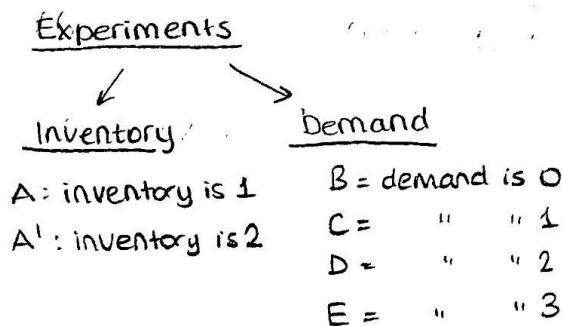 Experiments
Inventory
A: inventory is 1
A': inventory is 2
Demand
B = demand is 0
C = " " 1
D = " " 2
E = " " 3